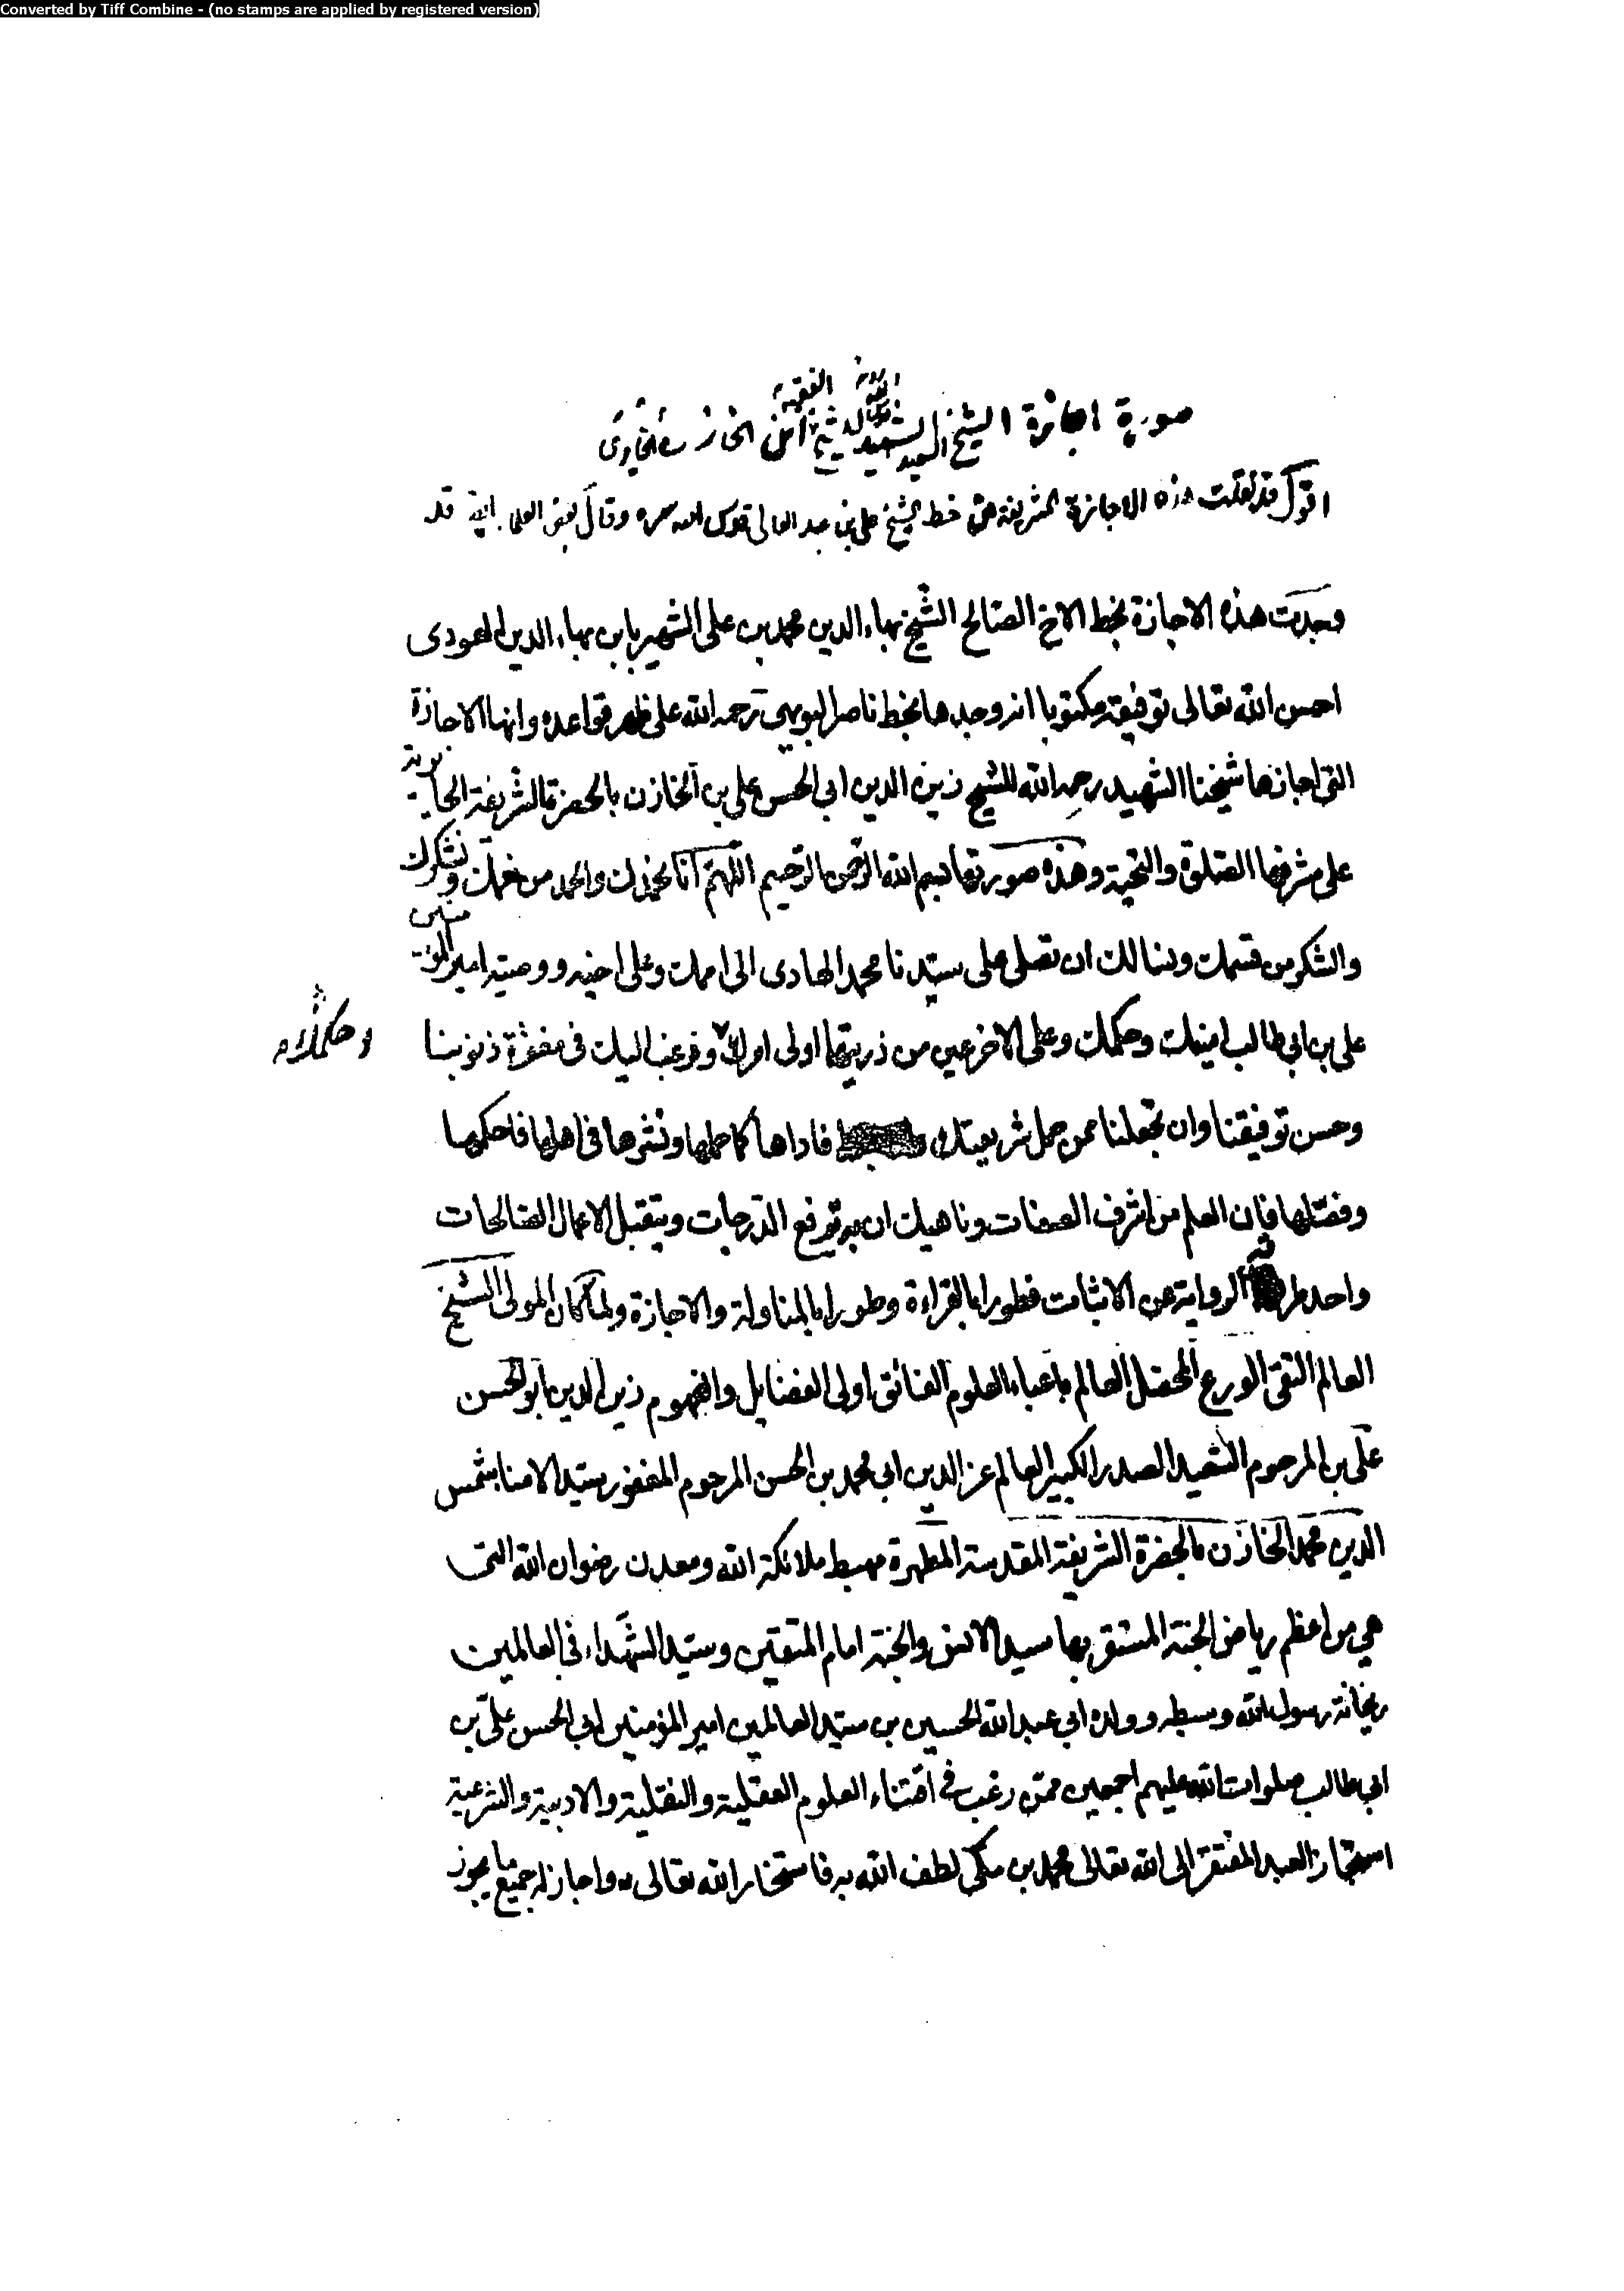 Converted by Tiff Combine - (no stamps are applied by registered version)
صورة اجازة الشيخ السعيد الشهيد للشيخ الفقيه ابن الخازن الحايرى
اقول قد نقلت هذه الاجازة الشريفة من خط الشيخ على بن عبد العالى قدس الله سره وقال بعض العلماء ايضا قد
وجدت هذه الاجازة بخط الاخ الصالح الشيخ بهاء الدين محمد بن على الشهير بابن بهاء الدين العودى
احسن الله تعالى توفيقه مكتوبا انه وجدها بخط ناصر البويهى رحمه الله على ظهر قواعده وانها الاجازة
التى اجازها شيخنا الشهيد رحمه الله للشيخ زين الدين ابى الحسن على بن الخازن بالحضرة الشريفة الحايرية
على مشرفها الصلوة والتحية وهذه صورتها بسم الله الرحمن الرحيم اللهم انا نحمدك والحمد من نعمك ونشكرك
والشكر من قسمك ونسالك ان تصلى على سيدنا محمد الهادى الى امرك وعلى اخيه ووصيه امير المؤمنين
على بن ابى طالب امينك وحكمك وعلى الاخرعين من ذريتهما اولى امرك ونرغب اليك فى مغفرة ذنوبنا
وحسن توفيقنا وان تجعلنا ممن حمل شريعتك فاداها كما حملها ونشرها فى اهلها فاحكمها
وفصلها فان العلم من اشرف الصفات وناهيك ان به ترفع الدرجات ويتقبل الاعمال الصالحات
واحد طرقه الرواية عن الاثبات فطورا بالقراءة وطورا بالمناولة والاجازة ولما كان المولى الشيخ
العالم التقى الورع المحصل العالم باعباء العلوم الفائق اولى الفضايل والفهوم زين الدين ابو الحسن
على بن المرحوم السعيد الصدر الكبير العالم عز الدين ابى محمد بن الحسن المرحوم المغفور سيد الامنا شمس
الدين محمد الخازن بالحضرة الشريفة المقدسة المطهرة مهبط ملائكة الله ومعدن رضوان الله التى
هى من اعظم رياض الجنة المستقر بها سيد الانس والجنة امام المتقين وسيد الشهداء فى العالمين
ريحانة رسول الله وسبطه وولده ابى عبد الله الحسين بن سيد العالمين امير المؤمنين ابى الحسن على بن
ابى طالب صلوات الله عليهم اجمعين ممن رغب فى اقتناء العلوم العقلية والنقلية والادبية والشرعية
استجاز العبد المفتقر الى الله تعالى محمد بن مكى لطف الله به فاستخار الله تعالى واجاز له جميع ما يجوز